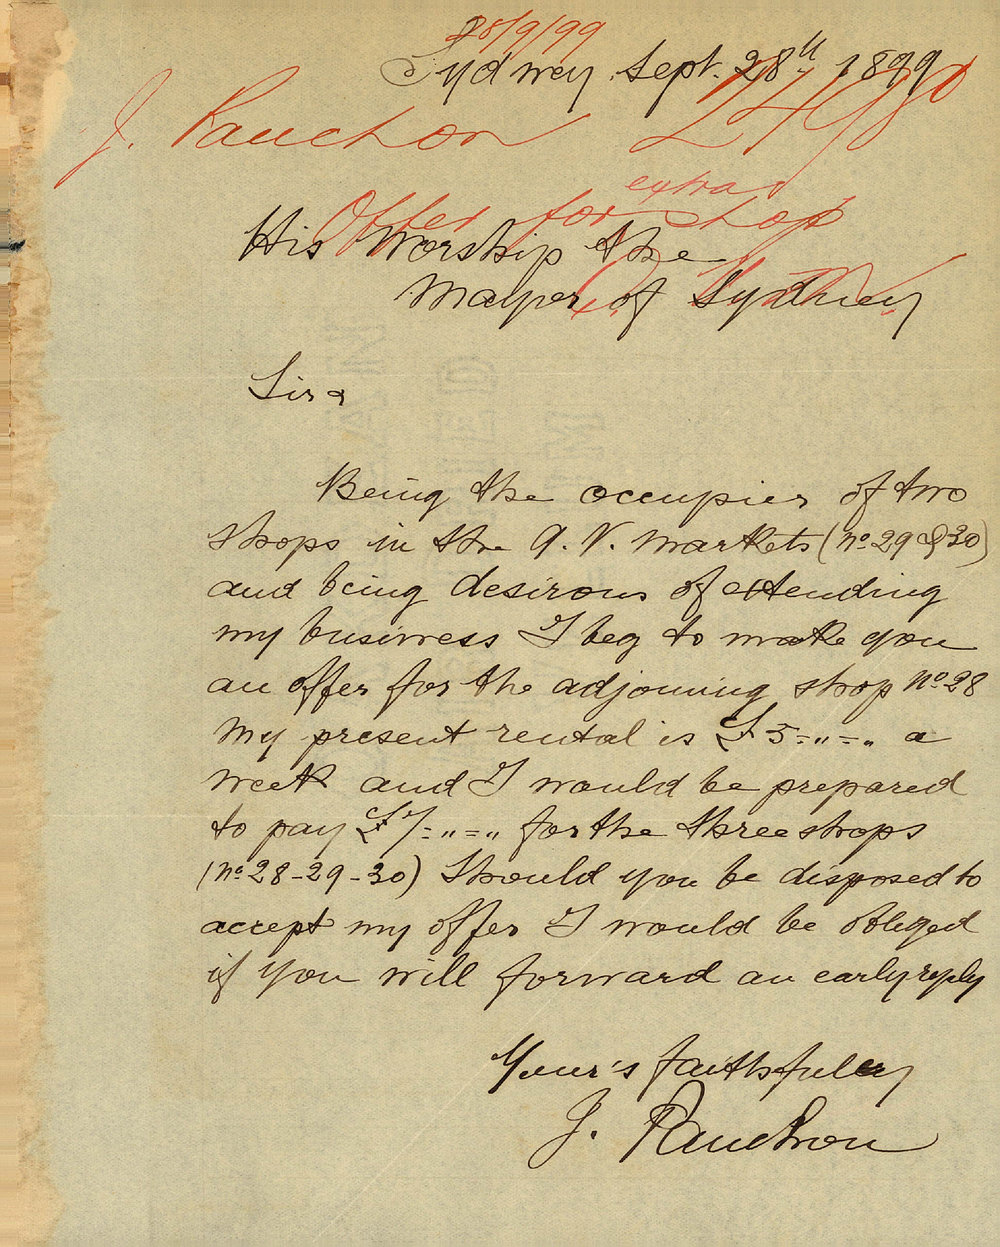 28/9/99
Sydney Sept. 28th 1899
J. Pauchon
extra
Offer for shop
His Worship the
Mayor of Sydney
Sir
Being the occupier of two
shops in the Q. V. Markets (no 29 & 30)
and being desirous of extending
my business I beg to make you
an offer for the adjoining shop no 28
My present rental is £5=„=„ a
week and I would be prepared
to pay £7=„=„ for the three shops
(no 28-29-30) Should you be disposed to
accept my offer I would be obliged
if you will forward an early reply
Your's faithfully
J. Pauchon